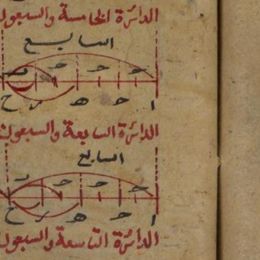 الدائرة الخامسة والسبعون
السابع
ح ح ح
ا ح ه ح
الدائرة السابعة والسبعون
السابع
ح ح ح
ا ح ه ح
الدائرة التاسعة والسبعون